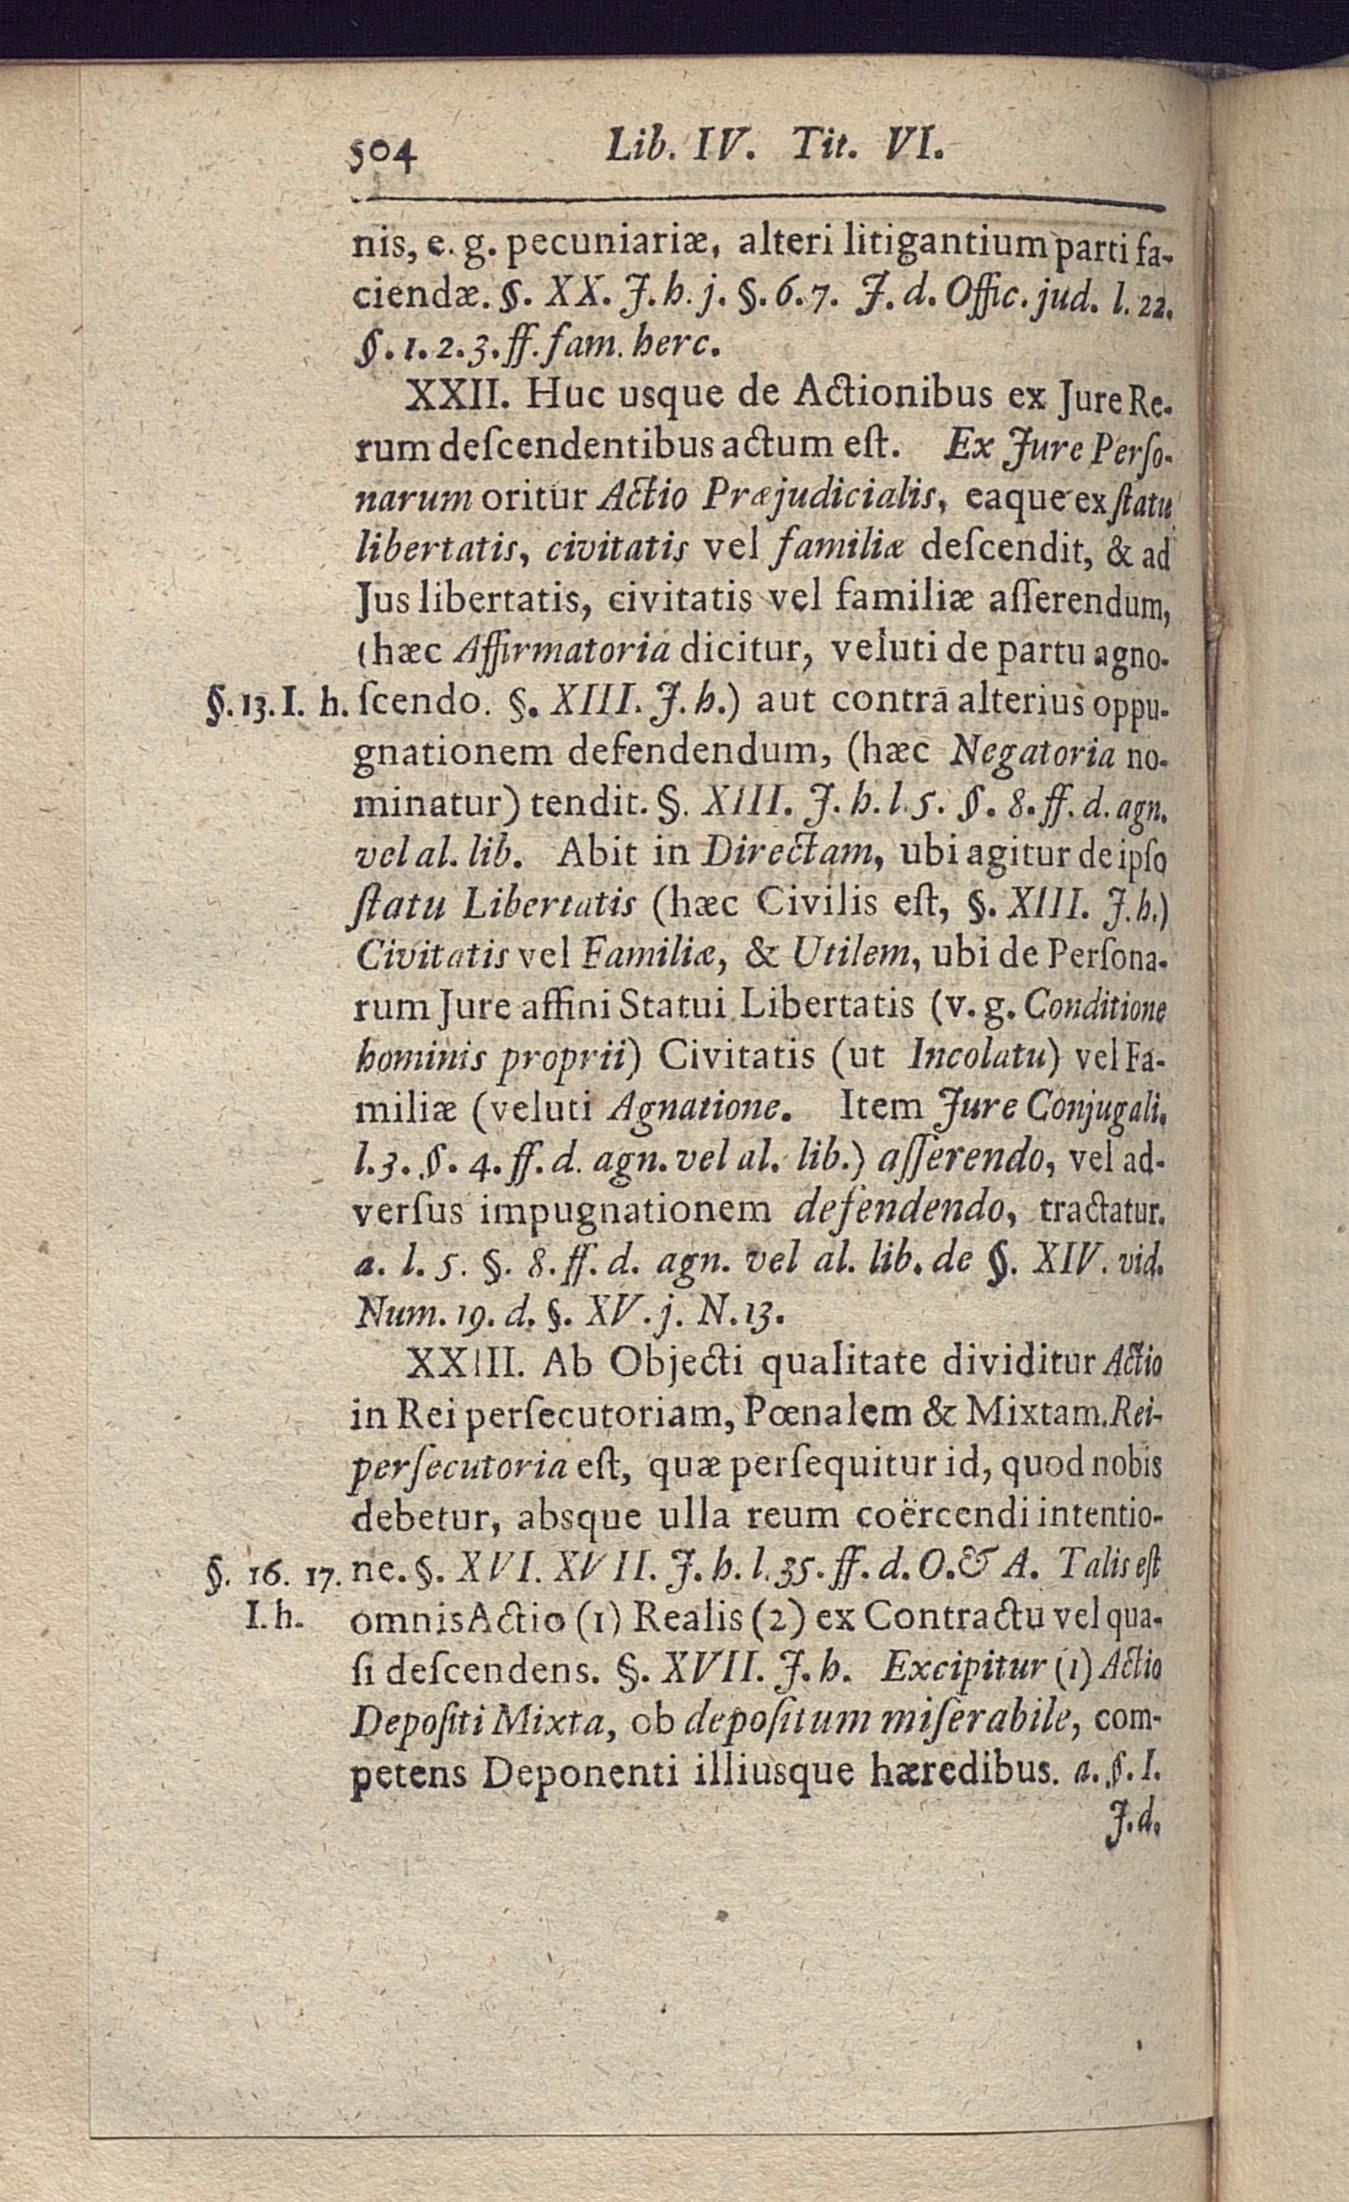 504 Lib. IV. Tit. VI.
nis, e. g. pecuniariæ, alteri litigantium parti fa-
ciendæ. §. XX. J. h. j. §. 6. 7. J. d. Offic. jud. l. 22.
§. 1. 2. 3. ff. fam. herc.
XXII. Huc usque de Actionibus ex Jure Re-
rum deſcendentibus actum eſt. Ex Jure Perſo-
narum oritur Actio Præjudicialis, eaque ex ſtatu
libertatis, civitatis vel familiæ deſcendit, & ad
Jus libertatis, civitatis vel familiæ aſſerendum,
(hæc Affirmatoria dicitur, veluti de partu agno-
§. 13. I. h. ſcendo. §. XIII. J. h.) aut contra alterius oppu-
gnationem defendendum, (hæc Negatoria no-
minatur) tendit. §. XIII. J. h. l. 5. §. 8. ff. d. agn.
vel al. lib. Abit in Directam, ubi agitur de ipſo
ſtatu Libertatis (hæc Civilis eſt, §. XIII. J. h.)
Civitatis vel Familiæ, & Utilem, ubi de Perſona-
rum Jure affini Statui Libertatis (v. g. Conditione
hominis proprii) Civitatis (ut Incolatu) vel Fa-
miliæ (veluti Agnatione. Item Jure Conjugali.
l. 3. §. 4. ff. d. agn. vel al. lib.) aſſerendo, vel ad-
verſus impugnationem defendendo, tractatur.
a. l. 5. §. 8. ff. d. agn. vel al. lib. de §. XIV. vid.
Num. 19. d. §. XV. j. N. 13.
XXIII. Ab Objecti qualitate dividitur Actio
in Rei perſecutoriam, Pœnalem & Mixtam. Rei-
perſecutoria eſt, quæ perſequitur id, quod nobis
debetur, absque ulla reum coërcendi intentio-
§. 16. 17. ne. §. XVI. XVII. J. h. l. 35. ff. d. O. & A. Talis eſt
I. h. omnis Actio (1) Realis (2) ex Contractu vel qua-
ſi deſcendens. §. XVII. J. h. Excipitur (1) Actio
Depoſiti Mixta, ob depoſitum miſerabile, com-
petens Deponenti illiusque hæredibus. a. §. I.
J. d.